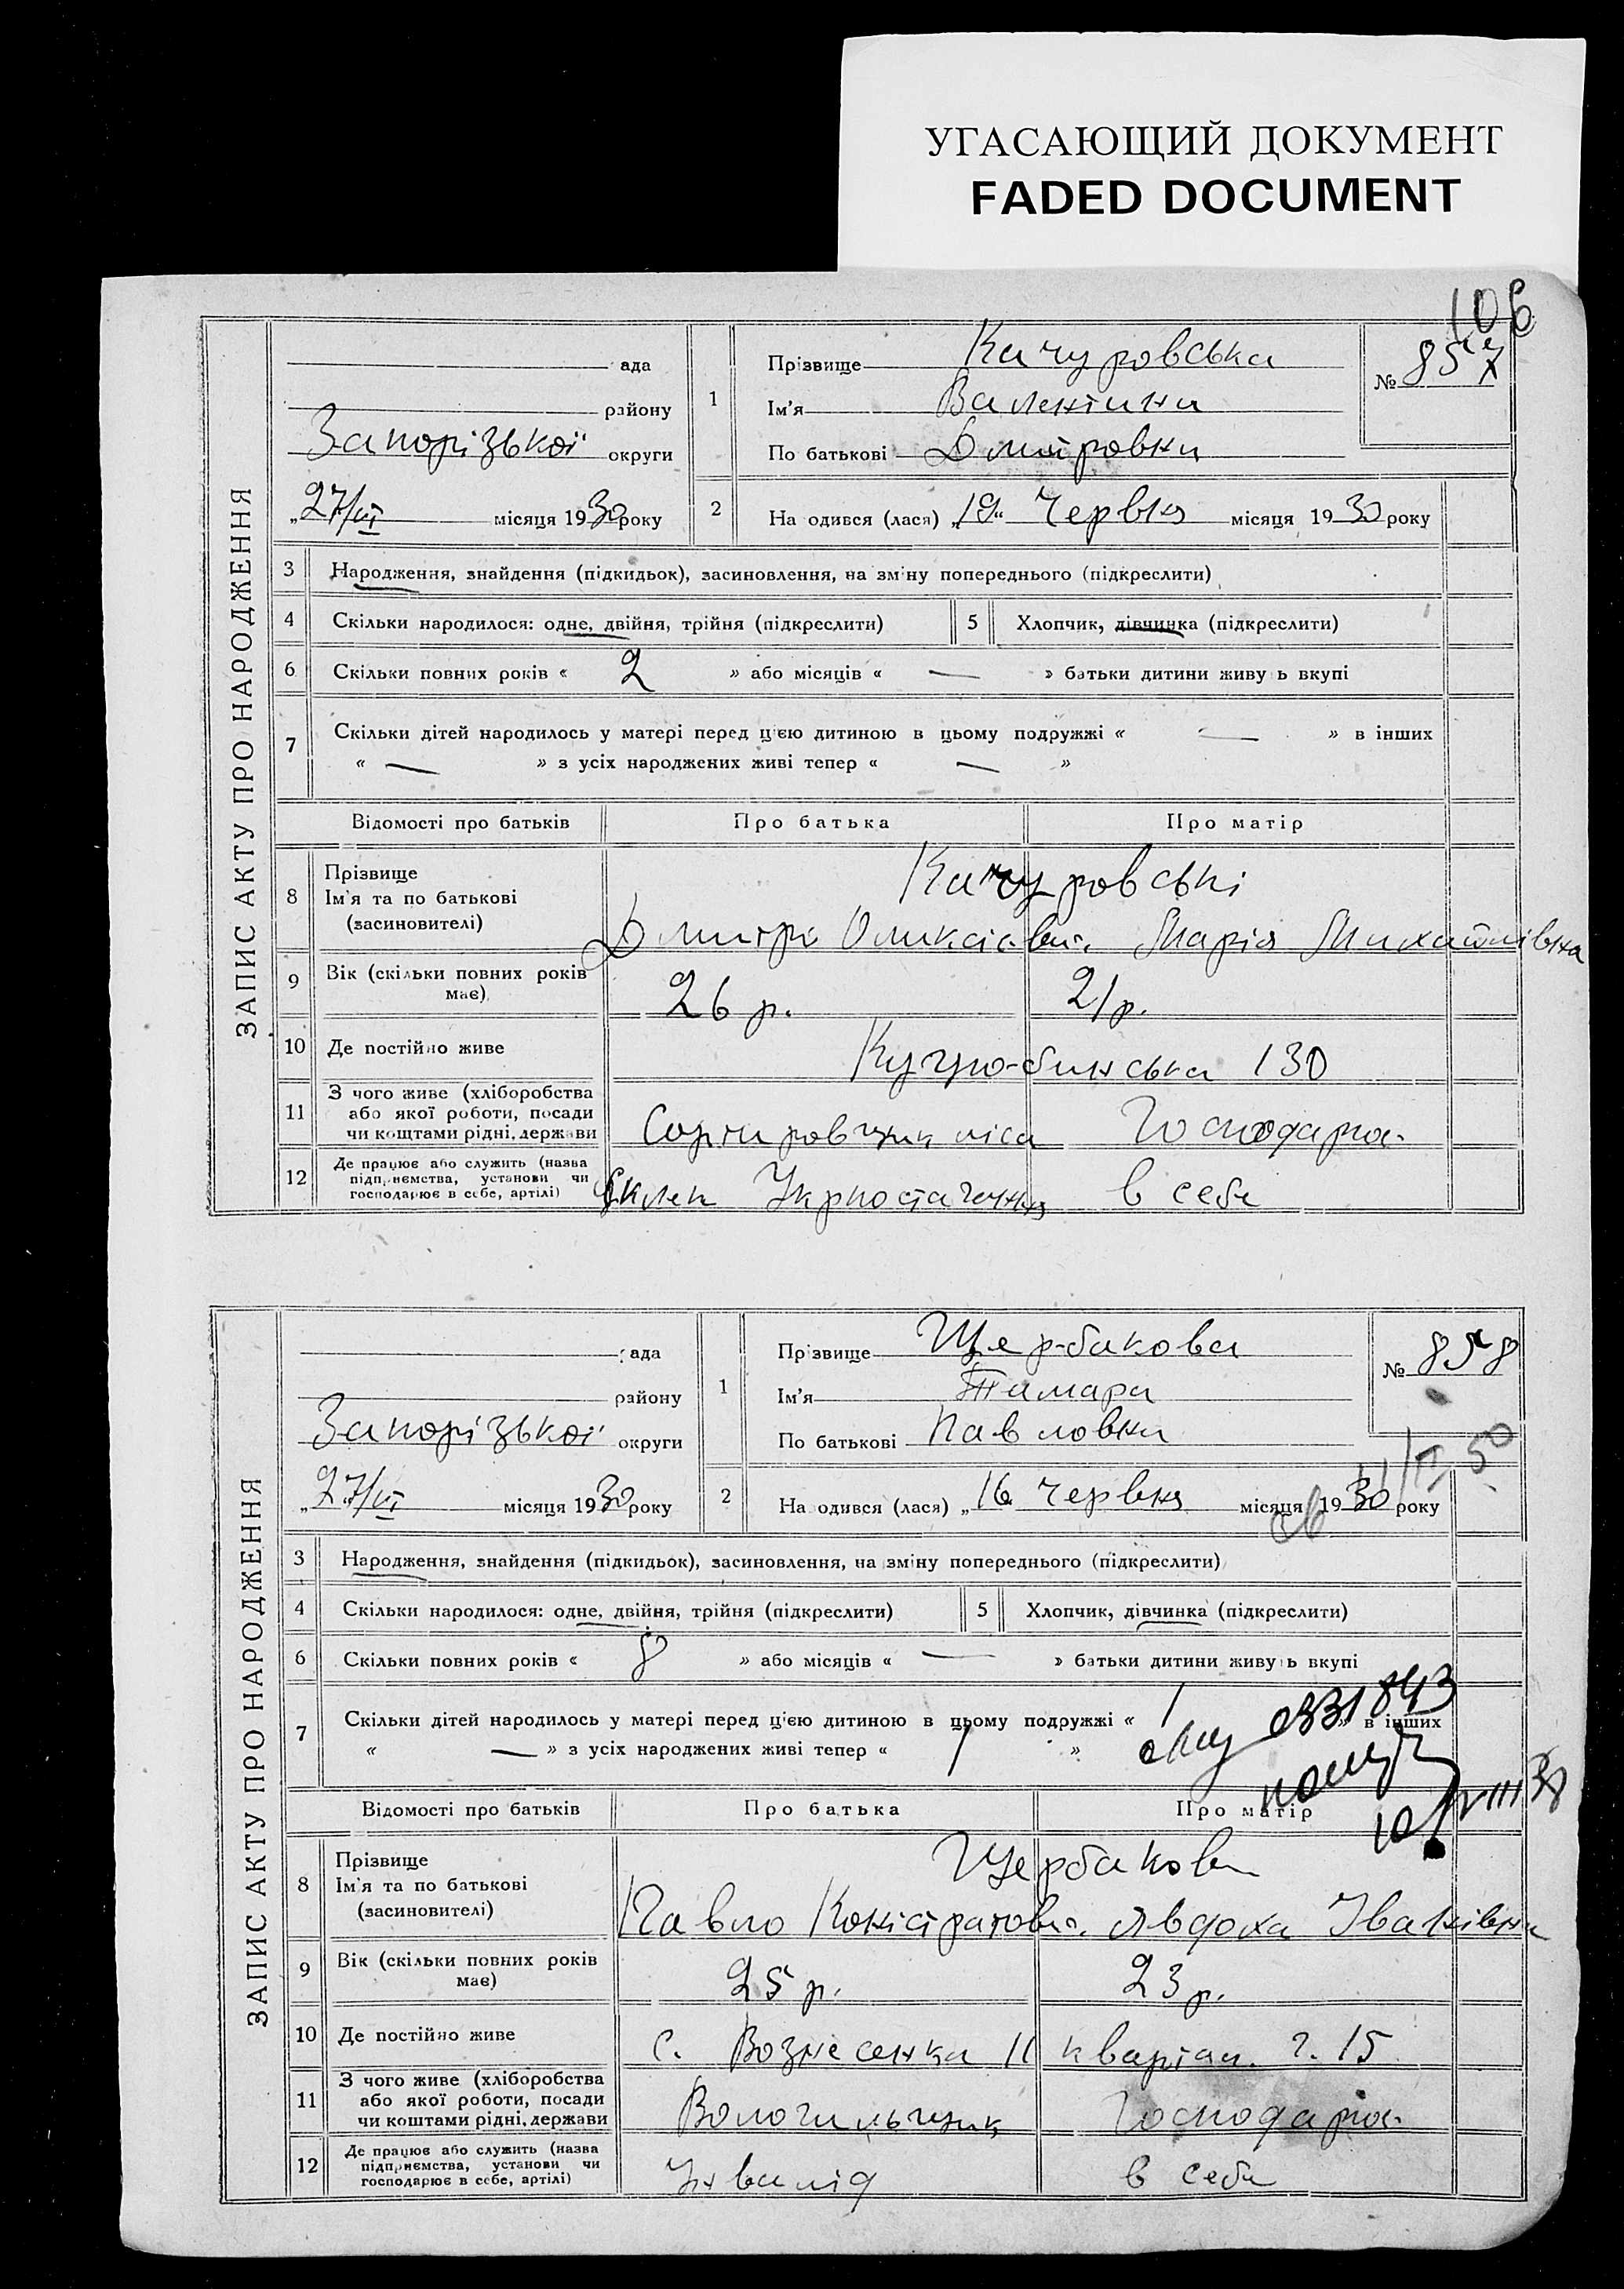 УГАСАЮЩИЙ ДОКУМЕНТ
FADED DOCUMENT
106
ЗАПИС АКТУ ПРО НАРОДЖЕННЯ
ада
району
Запорізької округи
„27/VI місяця 1930 року
1
Прізвище Качуровська
Ім'я Валентина
По батькові Дмитровна
№ 857
2
На одився (лася) „19“ Червня місяця 1930 року
3 Народження, знайдення (підкидьок), засиновлення, на зміну попереднього (підкреслити)
4 Скільки народилося: одне, двійня, трійня (підкреслити) 5 Хлопчик, дівчинка (підкреслити)
6 Скільки повних років « 2 » або місяців « — » батьки дитини живу ь вкупі
7 Скільки дітей народилось у матері перед цією дитиною в цьому подружжі « — » в інших
« — » з усіх народжених живі тепер « — »
Відомості про батьків Про батька Про матір
8 Прізвище
Ім'я та по батькові
(засиновителі)
Качуровські
Дмитро Олексієв. Марія Михайлівна
9 Вік (скільки повних років має) 26 р. 21 р.
10 Де постійно живе
130
11 З чого живе (хліборобства
або якої роботи, посади
чи коштами рідні, держави
Сортировщик ліса Господарка
12 Де працює або служить (назва
підприємства, установи чи
господарює в себе, артілі)
Склад Укрпостачення в себе
ЗАПИС АКТУ ПРО НАРОДЖЕННЯ
ада
району
Запорізької округи
„27/VI місяця 1930 року
1
Прізвище Щербакова
Ім'я Тамара
По батькові Павловна
№ 858
2
На одився (лася) „16 Червня місяця 1930 року
3 Народження, знайдення (підкидьок), засиновлення, на зміну попереднього (підкреслити)
4 Скільки народилося: одне, двійня, трійня (підкреслити) 5 Хлопчик, дівчинка (підкреслити)
6 Скільки повних років « 8 » або місяців « — » батьки дитини живуть вкупі
7 Скільки дітей народилось у матері перед цією дитиною в цьому подружжі « 1 » в інших
« — » з усіх народжених живі тепер « 1 »
0331843
Відомості про батьків Про батька Про матір
8 Прізвище
Ім'я та по батькові
(засиновителі)
Щербакови
Павло Явдоха Іванівна
9 Вік (скільки повних років має) 25 р. 23 р.
10 Де постійно живе
с. Вознесенка 11 квартал. 15
11 З чого живе (хліборобства
або якої роботи, посади
чи коштами рідні, держави
Волочильщик Господарка
12 Де працює або служить (назва
підприємства, установи чи
господарює в себе, артілі)
Інвалід в себе